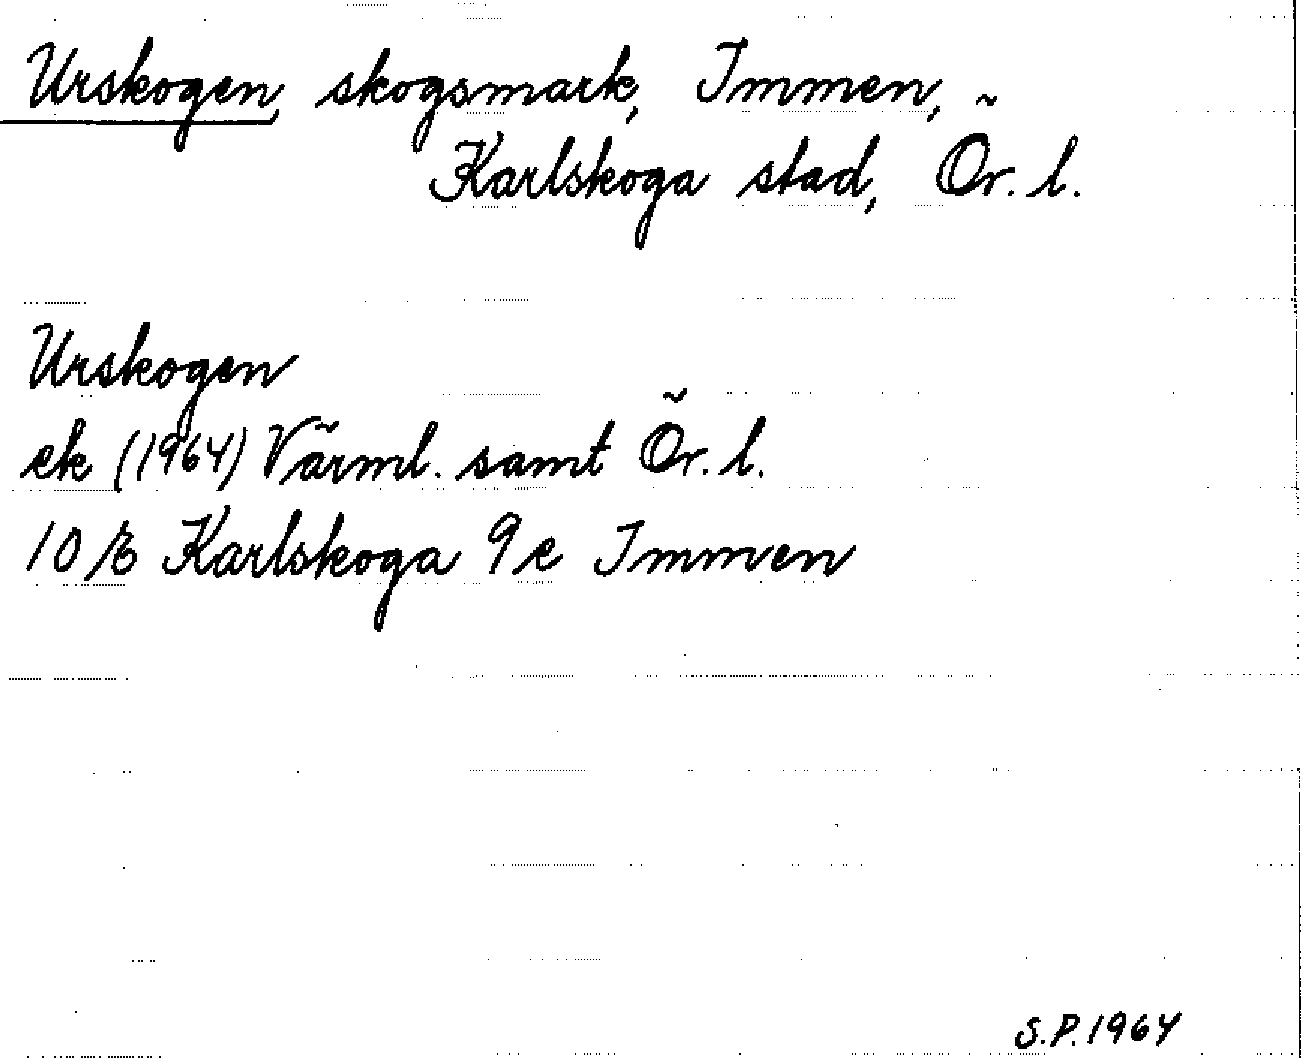 Urskogen, skogsmark, Immen,
Karlskoga stad, Ör. l.
Urskogen
ek (1964) Värml. samt Ör. l.
10 E Karlskoga 9 e Immen
S.P. 1964